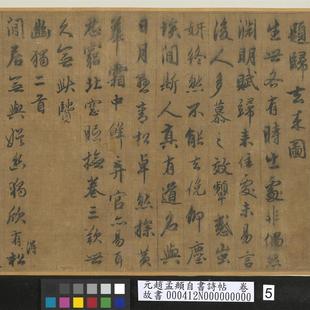 題歸去來圖
生世各有時出處非偶然
淵明賦歸來佳處未易言
後人多慕之效顰惑蚩
妍終然不能去俛仰塵
埃間斯人真有道名與
日月懸青松卓然操黃
華霜中鮮棄官亦易耳
忍窮北窓眠撫卷三歎世
久無此賢
幽獨二首
閒居無與娛幽獨欣有松
元趙孟頫自書詩帖 卷
故書 000412N000000000
5